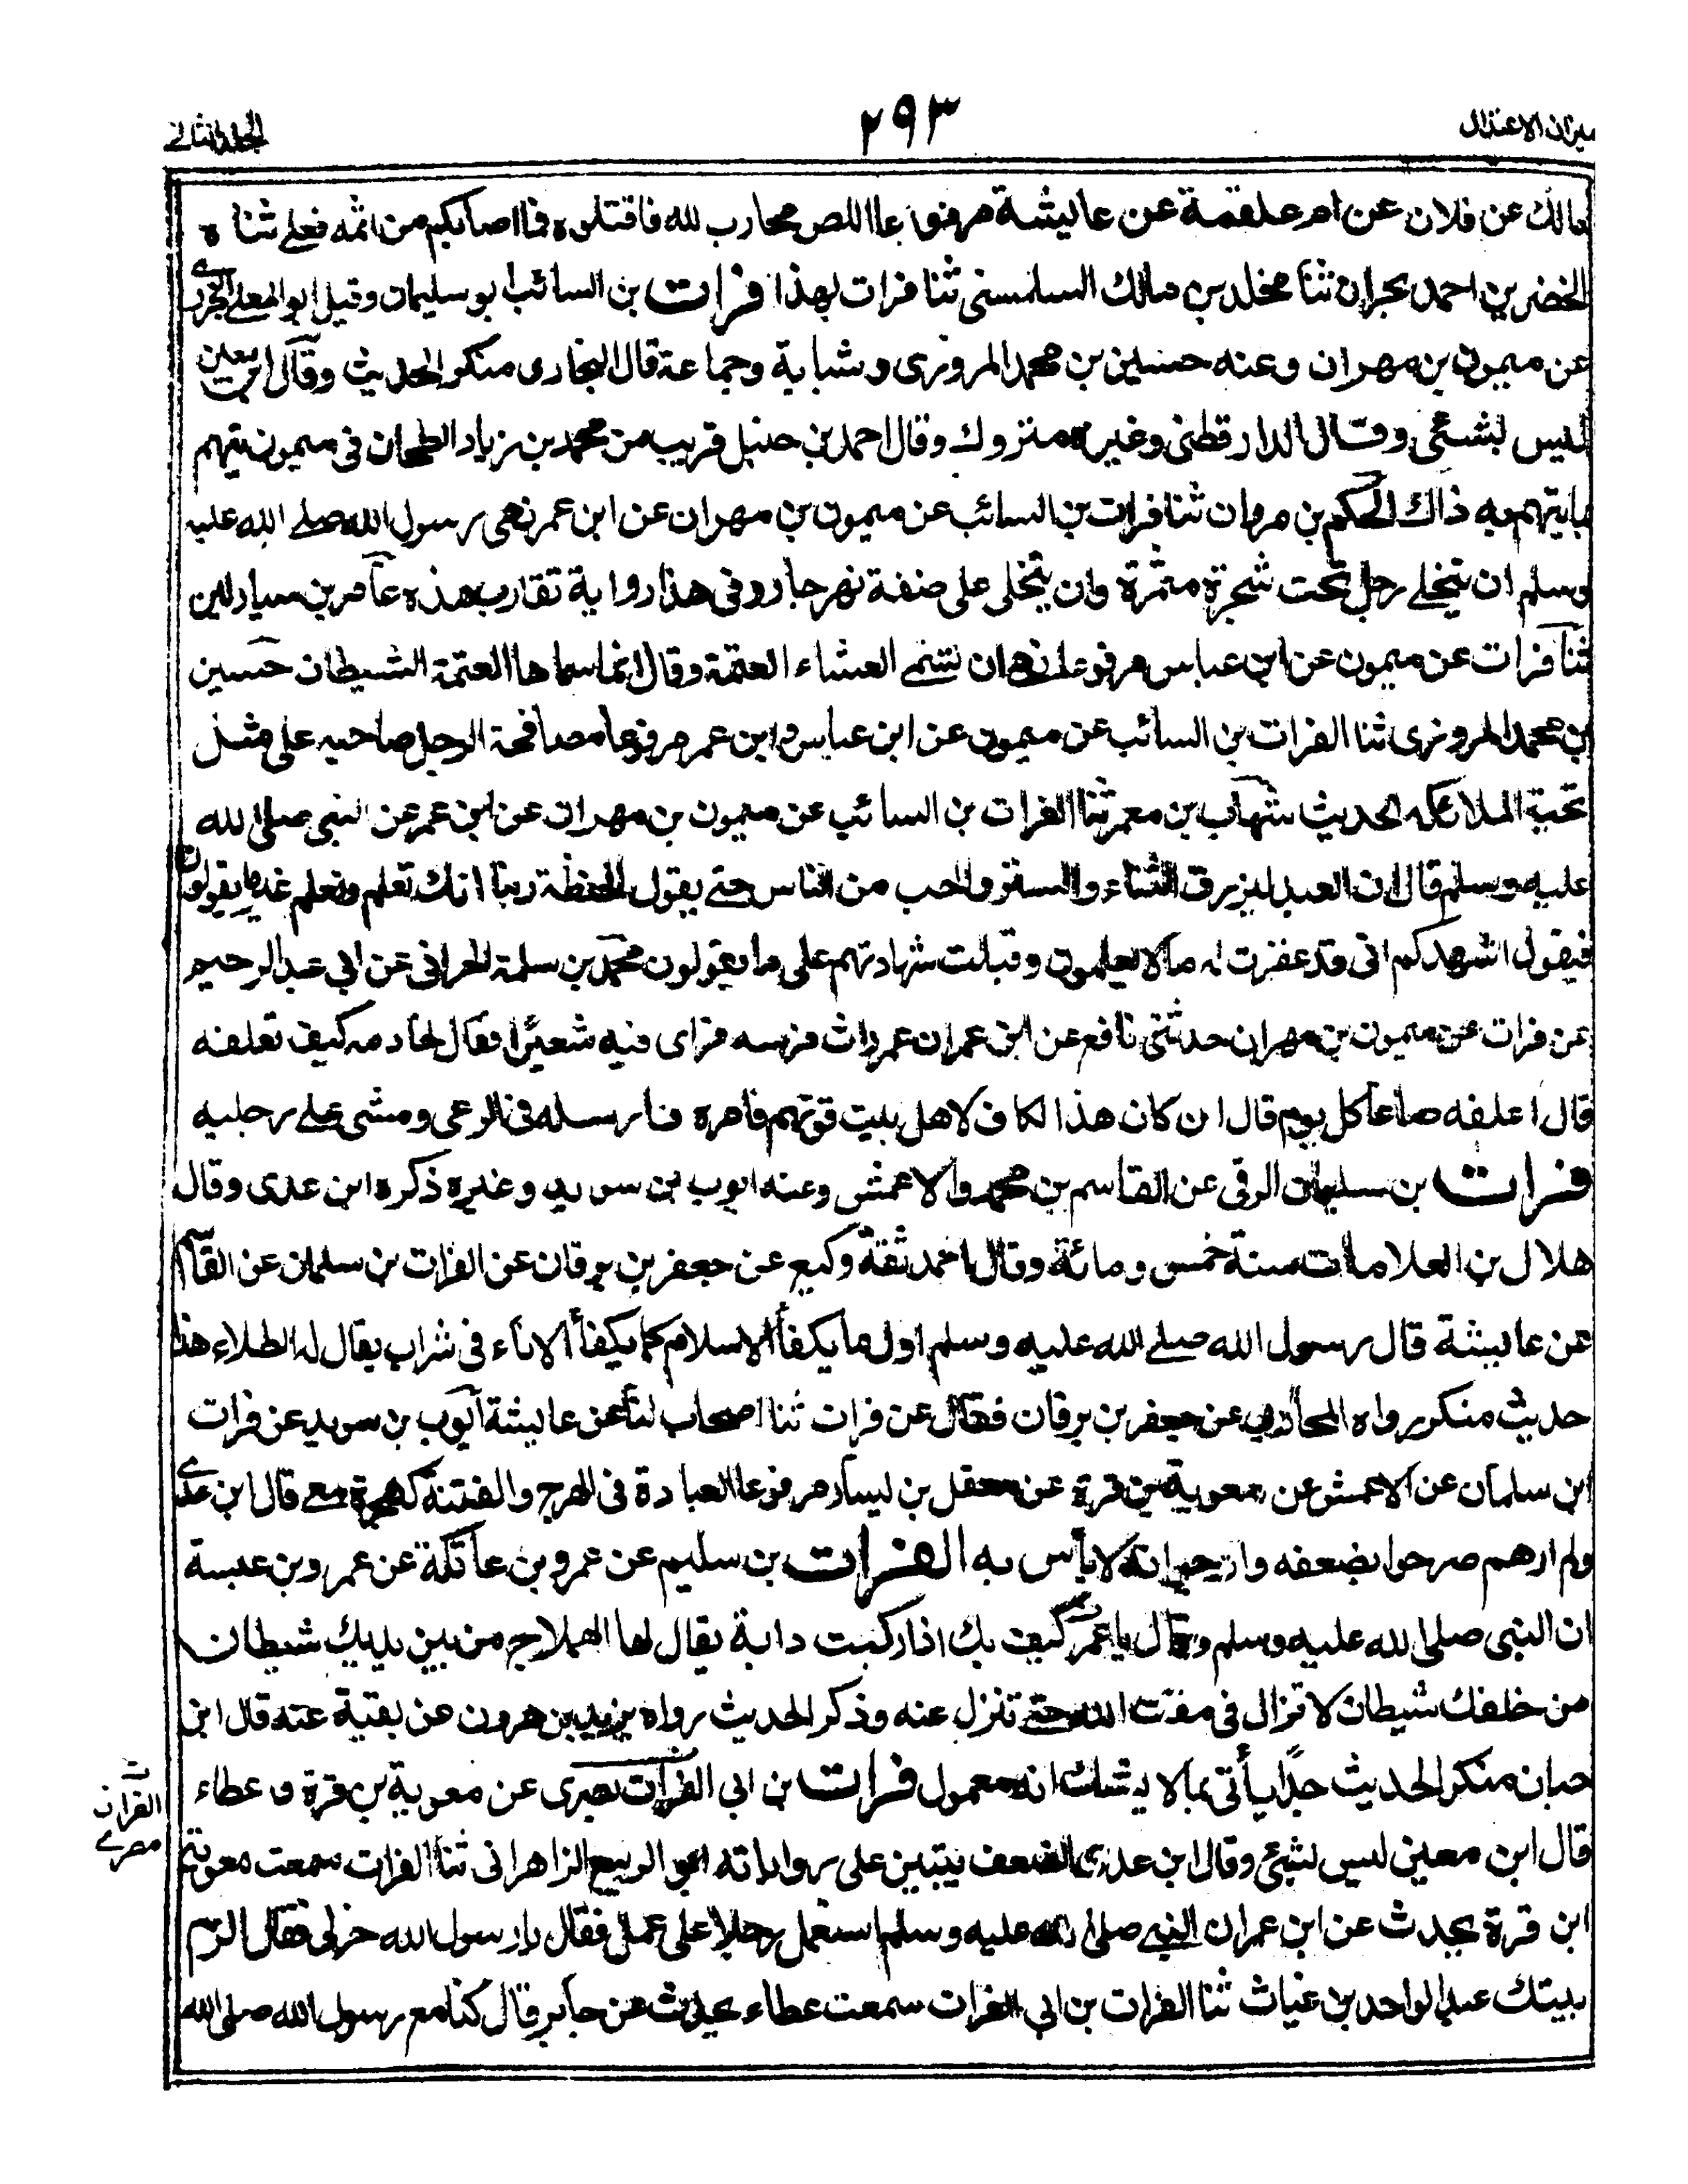 ميزان الاعتدال
٢٩٣
الجلد الثانى
مالك عن فلان عن ام علقمة عن عايشة مرفوعا اللص محارب لله فاقتلوه فما اصابكم من اثمه فعلى ثناه
الخضر بن احمد بحران ثنا مخلد بن مالك السلمسنى ثنا فرات بهذا فرات بن السائب ابو سليمان وقيل ابو المعلى الجزرى
عن ميمون بن مهران وعنه حسين بن محمد المروزى وشبابة وجماعة قال البخارى منكر الحديث وقال ابن معين
ليس بشئ وقال الدارقطنى وغيره متروك وقال احمد بن حنبل قريب من محمد بن زياد الطحان فى ميمون يتهم
بما يتهم به ذاك الحكم بن مروان ثنا فرات بن السائب عن ميمون بن مهران عن ابن عمر نهى رسول الله صلے الله عليه
وسلم ان يتخلے رجل تحت شجرة مثمرة وان يتخلى على ضفة نهر جار وفى هذا رواية تقارب هذه عامر بن سيار لين
ثنا فرات عن ميمون عن ابن عباس مرفوعا نهى ان تسمے العشاء العتمة وقال انما سماها العتمة الشيطان حسين
بن محمد المروزى ثنا الفرات بن السائب عن ميمون عن ابن عباس وابن عمر مرفوعا مصافحة الرجل صاحبه على مثل
تحية الملائكه الحديث شهاب بن معمر ثنا الفرات بن السائب عن ميمون بن مهران عن ابن عمر عن النبى صلى الله
عليه وسلم قال ان العبد ليرزق الثناء والستر والحب من الناس حتے يقول الحفظة ربنا انك تعلم ونعلم غير ما يقولون
فيقول اشهدكم انى قد غفرت له مالا يعلمون وقبلت شهادتهم على ما يقولون محمد بن سلمة الحرانى عن ابى عبد الرحيم
عن فرات عن ميمون بن مهران حدثنى نافع عن ابن عمر ان عمر راث فرسه فراى فيه شعيرًا فقال لخادمه كيف تعلفه
قال اعلفه صاعا كل يوم قال ان كان هذا لكاف لاهل بيت قوتهم فامره فارسله فى الرعى ومشى على رجليه
فرات بن سليمان الرقى عن القاسم بن محمد والاعمش وعنه ايوب بن سويد وغيره ذكره ابن عدى وقال
هلال بن العلا مات سنة خمس ومائة وقال احمد ثقة وكيع عن جعفر بن برقان عن الفرات بن سلمان عن القاسم
عن عايشة قال رسول الله صلے الله عليه وسلم اول ما يكفأ الاسلام كما يكفأ الاناء فى شراب يقال له الطلاء هذا
حديث منكر رواه المحاربى عن جعفر بن برقان فقال عن فرات ثنا اصحاب لنا عن عايشة ايوب بن سويد عن فرات
ابن سلمان عن الاعمش عن معوية بن قرة عن معقل بن يسار مرفوعا العبادة فى الهرج والفتنة كهجرة معے قال ابن عدے
ولم ارهم صرحوا بضعفه وارجو انه لا باس به الفرات بن سليم عن عمرو بن عاتكة عن عمرو بن عبسة
ان النبى صلى الله عليه وسلم وقال يا عمر كيف بك اذا ركبت دابة يقال لها الهملاج من بين يديك شيطان
من خلفك شيطان لا تزال فى مقت الله حتے تنزل عنه وذكر الحديث رواه يزيد بن هرون عن بقية عنه قال ابن
حبان منكر الحديث جدًا يأتى بما لا يشك انه معمول فرات بن ابى الفرات بصرى عن معوية بن قرة و عطاء
قال ابن معين ليس بشئ وقال ابن عدى الضعف يتبين على رواياته ابو الربيع الزاهرانى ثنا الفرات سمعت معوية
ابن قرة يحدث عن ابن عمر ان النبے صلى الله عليه وسلم استعمل رجلا على عمل فقال يا رسول الله خر لى فقال الزم
بيتك عبد الواحد بن غياث ثنا الفرات بن ابى الفرات سمعت عطاء يحدث عن جابر قال كنا مع رسول الله صلى الله